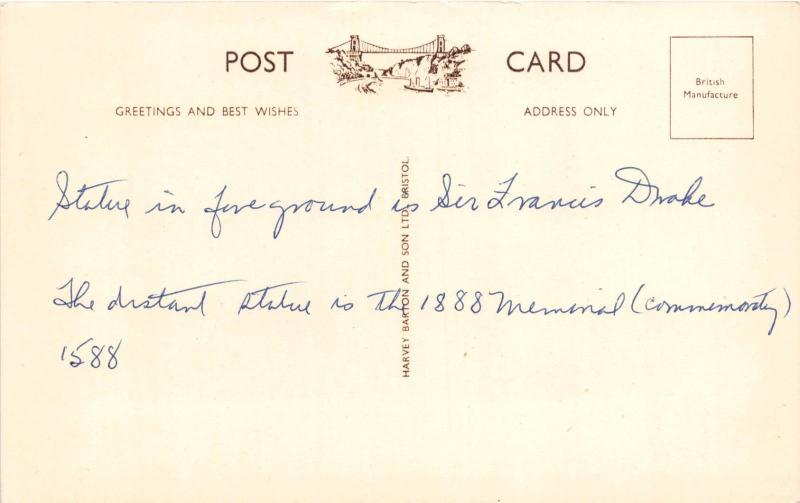 POST CARD
GREETINGS AND BEST WISHES
ADDRESS ONLY
British
Manufacture
HARVEY BARTON AND SON LTD. BRISTOL.
Statue in foreground is Sir Francis Drake
The distant statue is the 1888 Memorial (commemorating)
1588